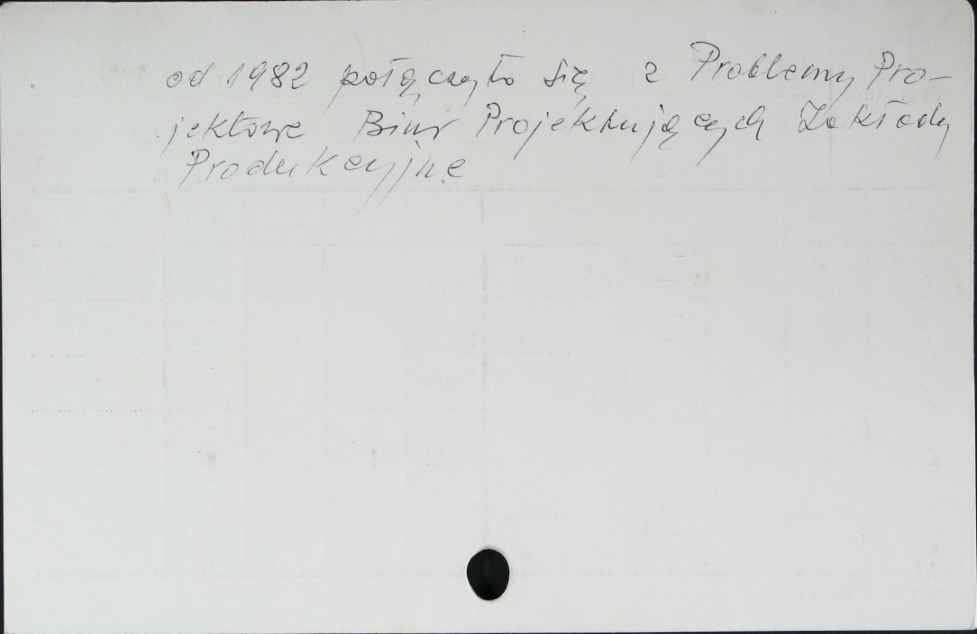 od 1982 połączyło się z Problemy Pro-
jektowe Biur Projektujących Zakłady
Produkcyjne